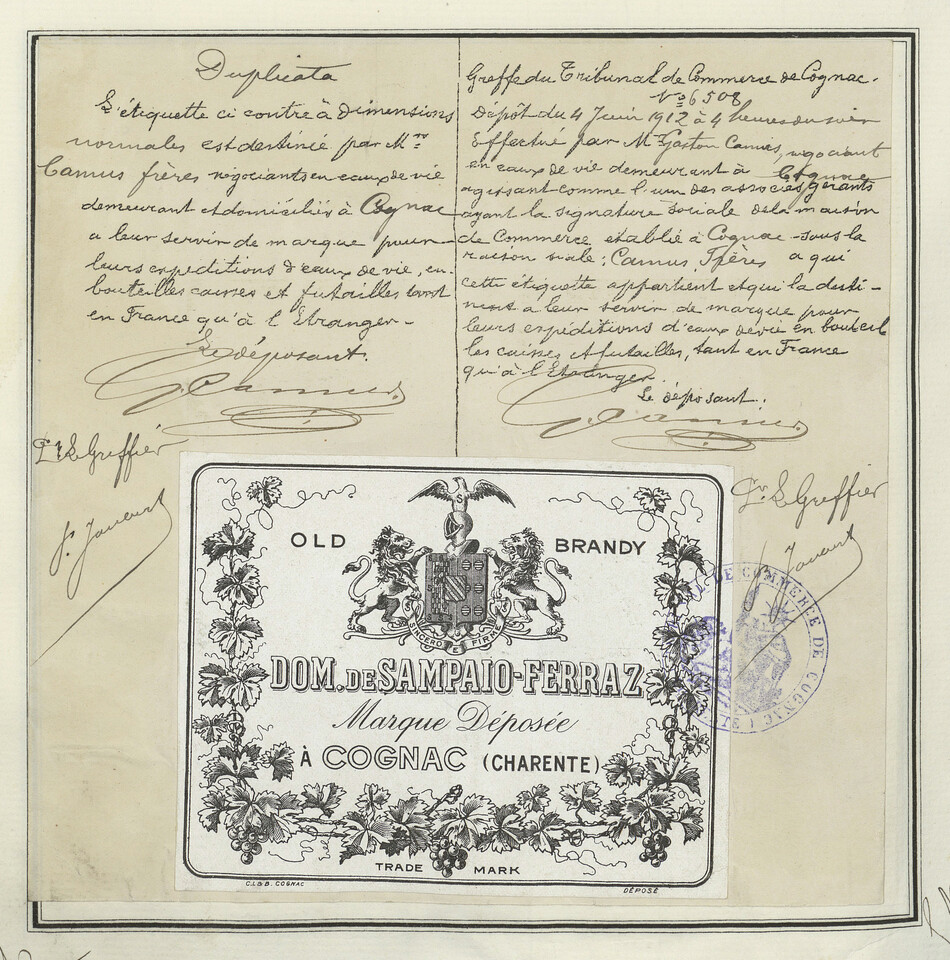 Duplicata
L'étiquette ci contre à dimensions
normales est destinée par M.rs
Camus frères negociants en eaux de vie
demeurant et domiciliés à Cognac
a leur servir de marque pour
leurs expeditions d'eaux de vie, en
bouteilles caisses et futailles tant
en France qu'à l'Etranger -
Le déposant.
G. Camus
Pr. Le Greffier
Greffe du Tribunal de Commerce de Cognac.
No 6508
Dépôt du 4 Juin 1912 à 4 heures du soir
Effectué par M. Gaston Camus, négociant
en eaux de vie demeurant à Cognac
agissant comme l'un des associés gérants
ayant la signature sociale de la maison
de Commerce établie à Cognac - sous la
raison siale: Camus Frères a qui
cette étiquette appartient et qui la desti-
nent a leur servir de marque pour
leurs expéditions d'eaux de vie en bouteil
les caisses et futailles, tant en France
qu'à l'Etranger.
Le déposant.
G. Camus
Pr. Le Greffier
OLD BRANDY
S
SINCERO E FIRME
DOM. DE SAMPAIO-FERRAZ
Marque Déposée
À COGNAC (CHARENTE)
TRADE MARK
C.L & B. COGNAC
DÉPOSÉ
DE COMMERCE DE COGNAC